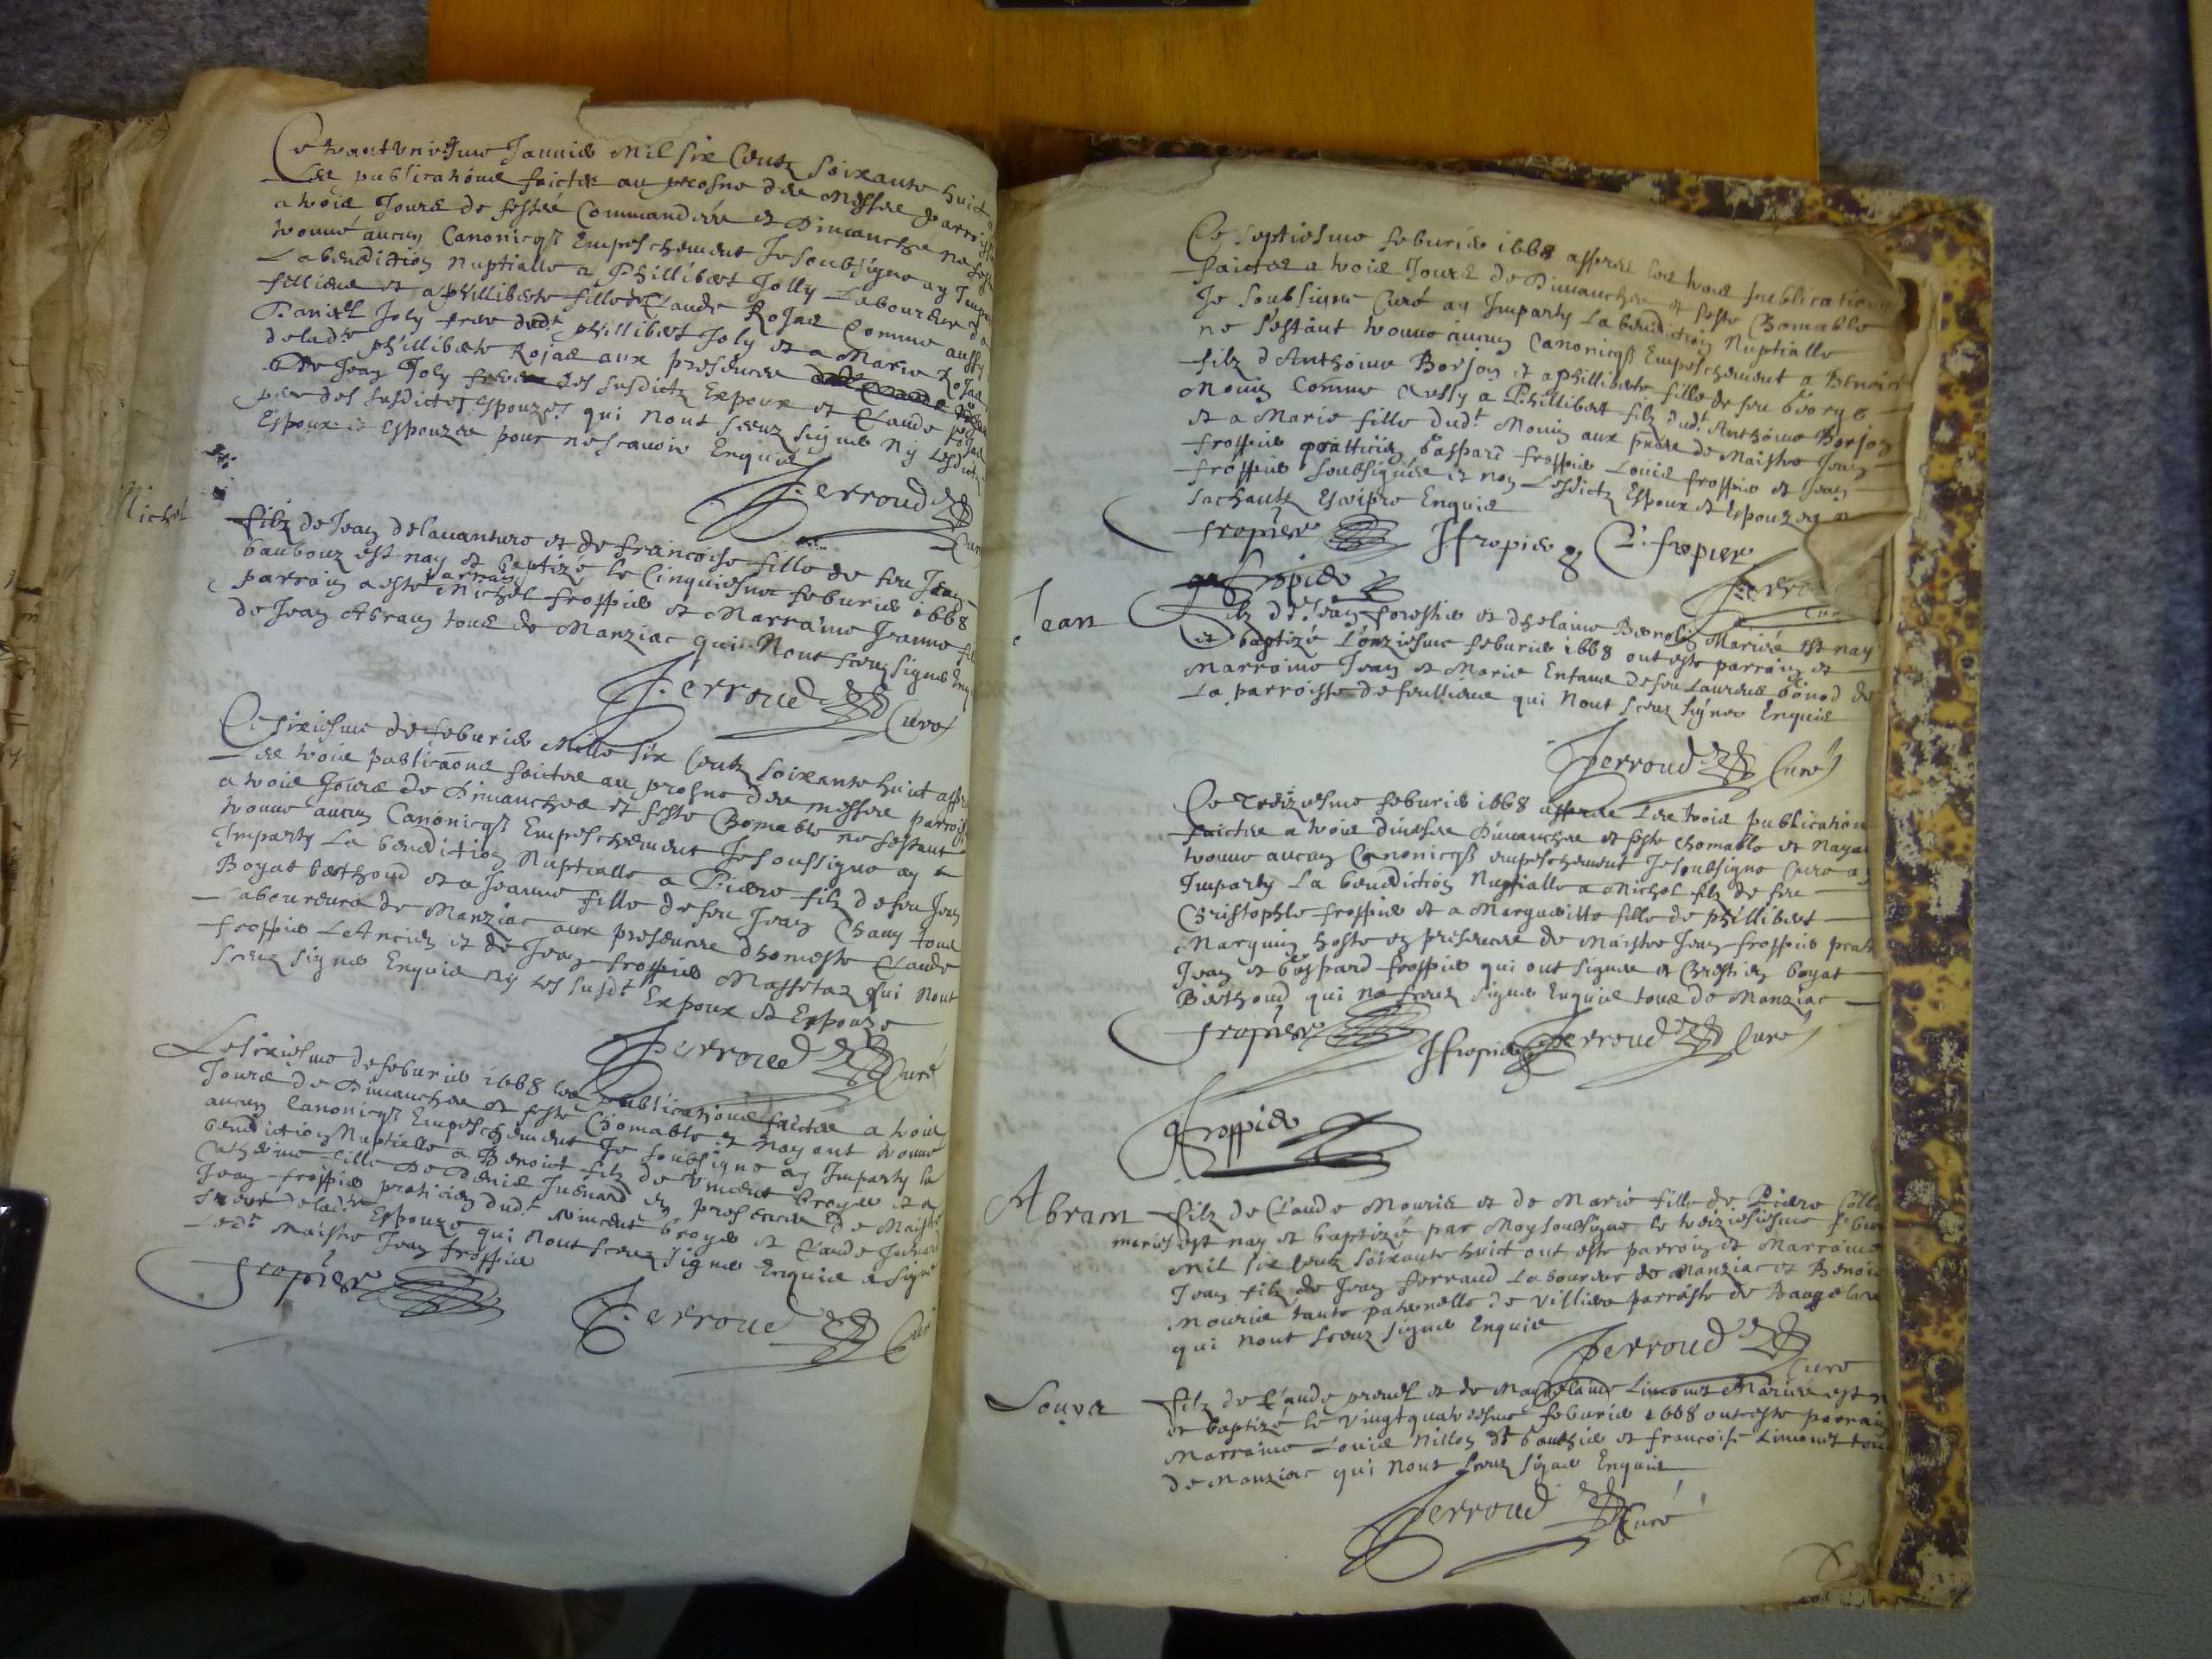 Ce vantuniesme Januier Mil six Centz soixante huict
Les publications faictes au prosne des Messes parroiss
a trois Jours de festes Commandées et Dimanche ne sest
trouué aucun Canonicqz Empeschement Je soubsigne ay Impa
La benediction Nuptialle a Phillibert Jolly Laboureur d
filliere et a phillibert fille de Claude Rojat Comme aussy
Daniel Joly frere dudt phillibert Joly et a Marie Rojat
deladte phillibert Rojat aux presences
de Jean Joly frere des susdictz Expoux et Claude Rojat
pere des susdictes Espouzes qui Nont sceuz signer Ny Lesdictz
Espoux et Espouzes pour ne scauoir Enquis
Perroud Curé
Michel
filz de Jean delauanture et de francoise fille de feu Jean
baubouz est nay et baptizé le Cinquiesme feburier 1668
parrain a este Michel froppier et Marraine Jeanne fil
parrain
de Jean Abram tous de Manziac qui Nont sceuz signer Enq
Perroud Curé
Ce sixiesme de feburier Mille six Centz soixante huict appres
Les trois publications faictes au prosne des messes parroiss
a trois Jours de Dimanches et feste Chomable ne sestant
trouue aucun Canonicqz Empeschement Je soussigne ay
Imparty La benediction Nuptialle a Pierre filz de feu Jean
Boyat berthoud et a Jeanne fille de feu Jean Chany tous
Laboureurs de Manziac aux presences dhonneste Claude
froppier LeAncien et de Jean froppier Massetaz qui Nont
sceuz signer Enquis ny les susdt Expoux et Expouze
Perroud Curé
Lesixiesme de feburier 1668 les publications faictes a trois
Jours de Dimanches et feste Chomable et Nay ant trouue
aucun Canonicqz Empeschement Je soubsigne ay Imparty la
benediction Nuptialle a Benoict filz de Vincent broyer et a
Catherine fille De Denis Juenard en presence de Maistre
Jean froppier praticien dudt vincent broyer et Claude Juenard
frere deladte Espouze qui Nont sceuz signer Enquis a signe
Ledt Maistre Jean froppier
fropier
Perroud Curé
Ce septiesme feburier 1668 appres les trois publications
faictes a trois Jours de Dimanches et feste Chomable
Je soubsigne Curé ay Imparty La benediction Nuptialle
ne sestant trouue aucun Canonicqz Empeschement a Benoict
filz dAnthoine Borjon et a phillibert fille de feu George
Monin Comme Aussy a Phillibert filz dudt Anthoine Borjon
et a Marie fille dudt Monin aux pnces de Maistre Jean
froppier praticien Gaspard froppier Louis froppier et Jean
froppier soubsignes et non Lesdictz Espoux et Espouzes n
sachantz Escripre Enquis
fropier Jfropier C. fropier
gafropier Perroud Curé
Jean
filz de Jean forestier et dhelaine Bernolin Mariés est nay
et baptizé Lonziesme feburier 1668 ont este parrain et
Marraine Jean et Marie Enfans de feu Laurens bonod de
La parroisse de feullieux qui Nont sceuz signer Enquis
Perroud Curé
Ce treiziesme feburier 1668 appres Les trois publications
faictes a trois diuerses Dimanches et feste Chomable et Nayant
trouue aucun Canonicqz empeschement Je soubsigne Cure ay
Imparty La benediction Nuptialle a Michel filz de feu
Christophle froppier et a Margueritte fille de phillibert
Marguin hoste en presences de Maistre Jean froppier prat
Jean et Gaspard froppier qui ont signes et Chrestien boyat
Berthoud qui na sceuz signer Enquis tous de Manziac
fropier Jfropier Perroud Curé
gfroppier
Abram
filz de Claude Mouris et de Marie fille de Pierre Collo
mariés est nay et baptizé par Moy soubsigne le treiziesme febur
Mil six Centz soixante huict ont este parrain et Marraine
Jean filz de Jean ferraud Laboureur de Manziac et Benoi
Mouris tante paternelle de villiere parroisse de Baugelar
qui Nont sceuz signer Enquis
Perroud Cure
Louys
filz de Claude prouel et de Magdelaine Limonet Mariés est n
et baptizé le vingtquatriesme feburier 1668 ont este parrain
Marraine Louis Nillon dt bauthier et francoise Limonet tous
de Manziac qui Nont sceuz signer Enquis
Perroud Curé